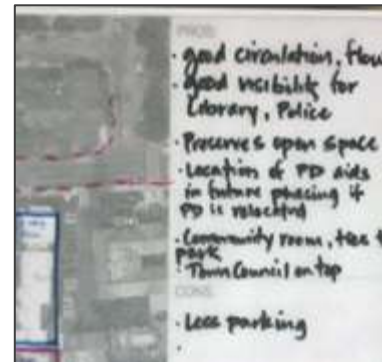 PROS:
· good circulation, flow
· good visibility for
Library, Police
· Preserves open space
· Location of PD aids
in future phasing if
PD is relocated
· Community room, ties t
park
· Town Council on top
CONS:
· Less parking
·